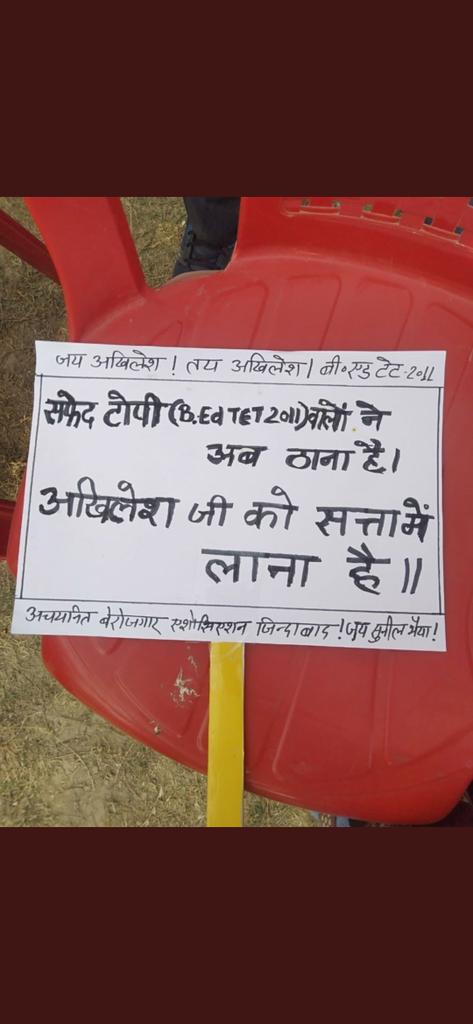 जय अखिलेश ! तय अखिलेश । बी॰एड टेट-2011
सफेद टोपी (B.Ed TET 2011) वालों ने
अब ठाना है।
अखिलेश जी को सत्ता में
लाना है ॥
अचयनित बेरोजगार एशोसिएशन जिन्दाबाद ! जय सुनील भैया !